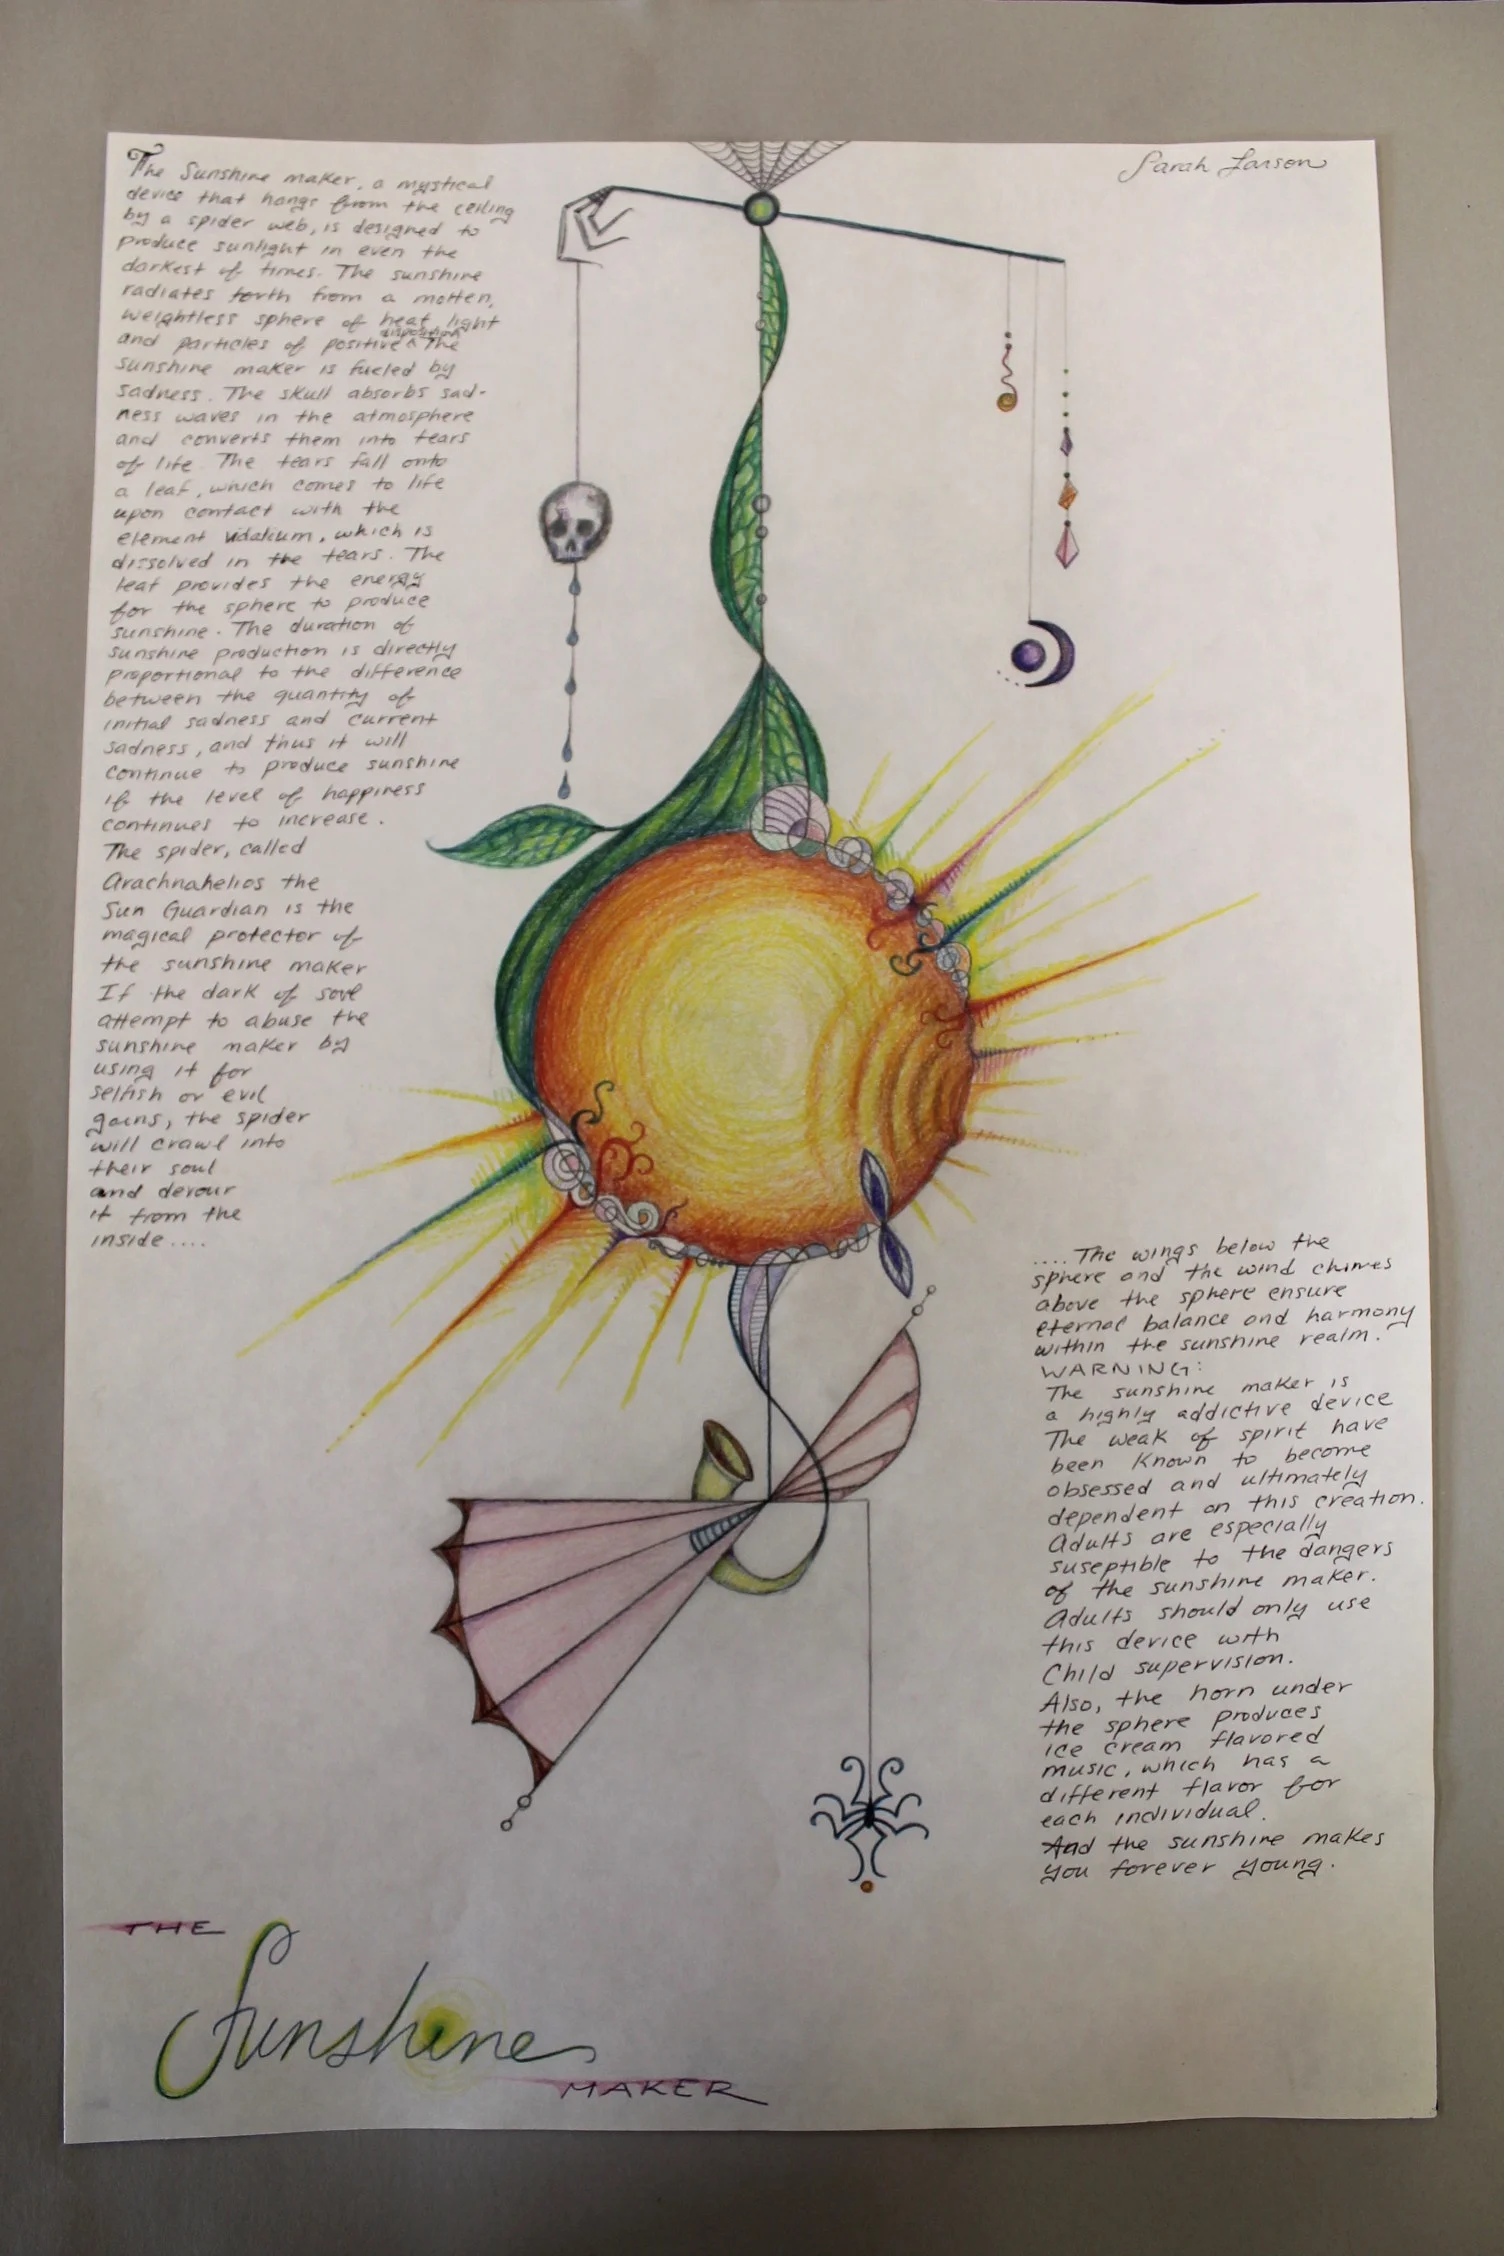 The Sunshine maker, a mystical
device that hangs from the ceiling
by a spider web, is designed to
produce sunlight in even the
darkest of times. The sunshine
radiates forth from a molten,
weightless sphere of heat, light
disposition
and particles of positive ^ The
sunshine maker is fueled by
sadness. The skull absorbs sad-
ness waves in the atmosphere
and converts them into tears
of life. The tears fall onto
a leaf, which comes to life
upon contact with the
element vidalium, which is
dissolved in the tears. The
leaf provides the energy
for the sphere to produce
sunshine. The duration of
sunshine production is directly
proportional to the difference
between the quantity of
initial sadness and current
sadness, and thus it will
continue to produce sunshine
if the level of happiness
continues to increase.
The spider, called
Arachnahelios the
Sun Guardian is the
magical protector of
the sunshine maker
If the dark of soul
attempt to abuse the
sunshine maker by
using it for
selfish or evil
gains, the spider
will crawl into
their soul
and devour
it from the
inside....
Sarah Larson
....The wings below the
sphere and the wind chimes
above the sphere ensure
eternal balance and harmony
within the sunshine realm.
WARNING:
The sunshine maker is
a highly addictive device
The weak of spirit have
been known to become
obsessed and ultimately
dependent on this creation.
Adults are especially
suseptible to the dangers
of the sunshine maker.
Adults should only use
this device with
Child supervision.
Also, the horn under
the sphere produces
ice cream flavored
music, which has a
different flavor for
each individual.
And the sunshine makes
you forever young.
THE
Sunshine
MAKER